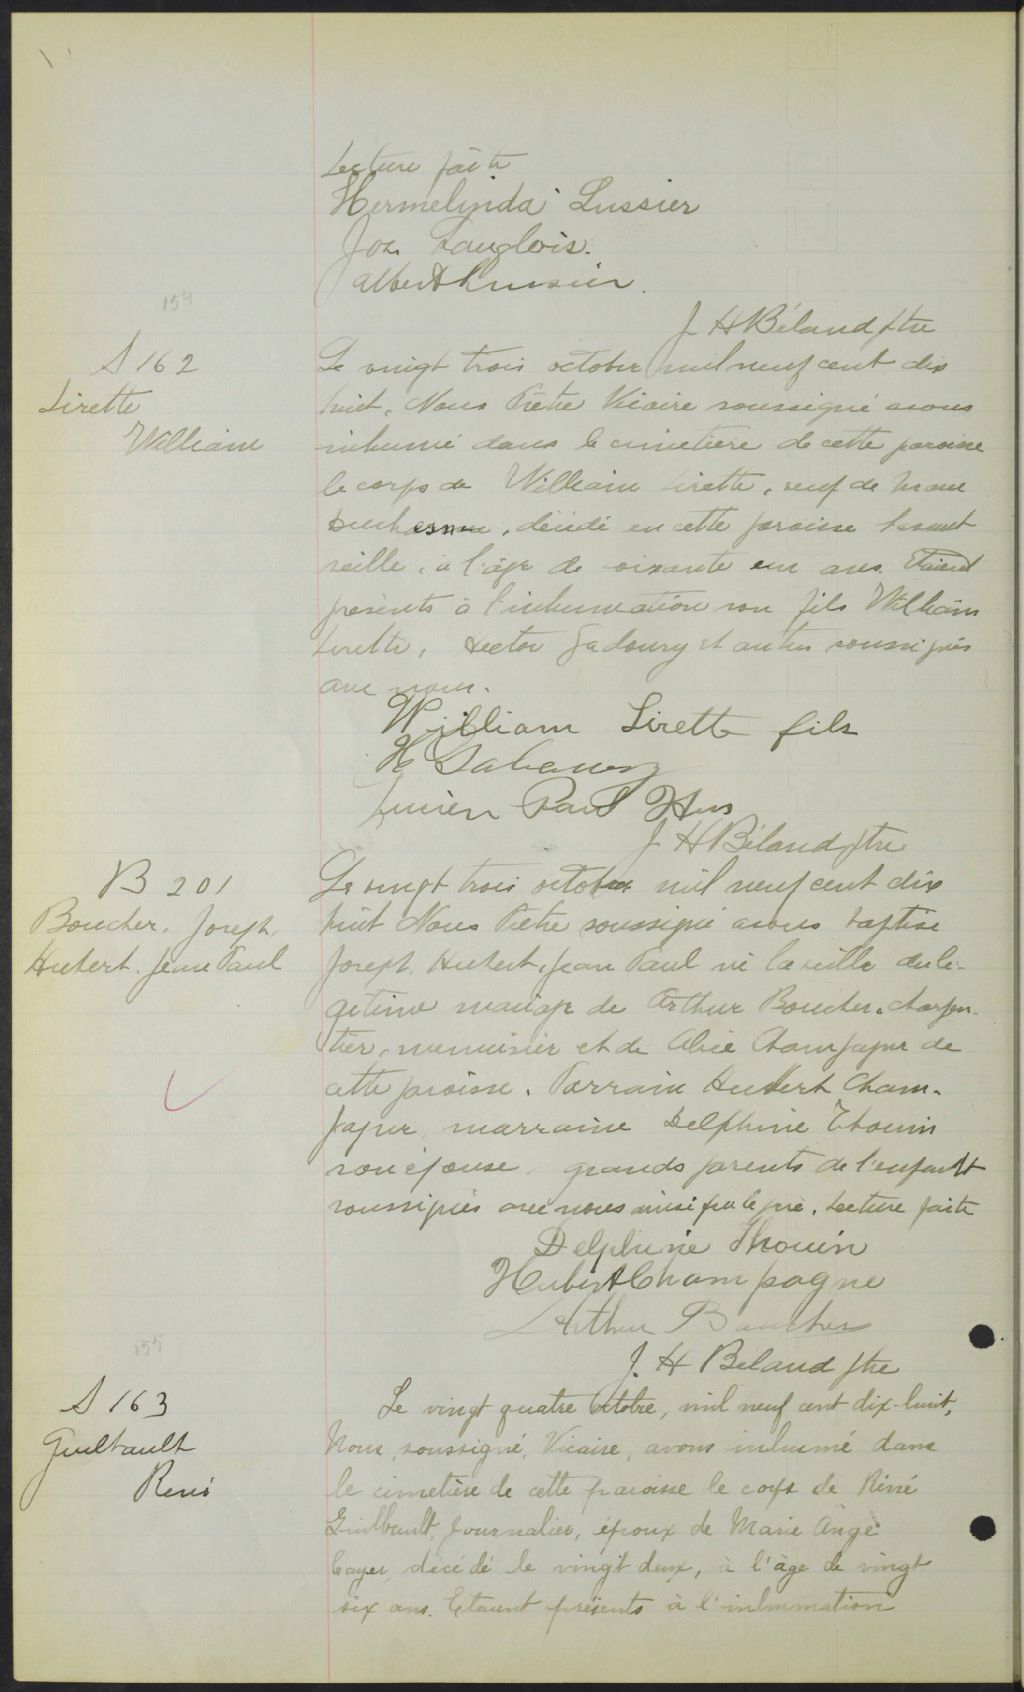 Lecture faite
Hermelinda Lussier
Jos. Langlois.
Albert Lussier.
J. H Béland ptre
154
S 162
Lirette
William
Le vingt trois octobre mil neuf cent dix
huit, Nous Prêtre Vicaire soussigné avons
inhumé dans le cimetière de cette paroisse
le corps de William Lirette, veuf de
décédé en cette paroisse l'avant
veille, à l'âge de soixante eun ans. Etaient
présents à l'inhumation son fils William
Lirette, Hector Gadoury et autres soussignés
avec nous.
William Lirette fils
H
Lucien Paul Hus
J. H Béland ptre
B 201
Boucher, Joseph,
Hubert, Jean Paul
Le vingt trois octobre mil neuf cent dix
huit Nous Prêtre soussigné avons baptisé
Joseph, Hubert, Jean Paul né la veille du lé-
gitime mariage de Arthur Boucher, charpen-
tier, menuisier et de Alice Champagne de
cette paroisse. Parrain Hubert Cham-
pagne, marraine Delphine Thouin
son épouse, grands parents de l'enfant
soussignés avec nous ainsi que le père. Lecture faite
Delphine Thouin
Hubert Champagne
Arthur Boucher
J. H Béland ptre
155
S 163
Guilbault
René
Le vingt quatre Octobre, mil neuf cent dix-huit,
Nous, soussigné, Vicaire, avons inhumé dans
le cimetière de cette paroisse le corps de Réné
Guilbault, Journalier, époux de Marie Ange
Cayer, décédé le vingt deux, à l'âge de vingt
six ans. Etaient présents à l'inhumation